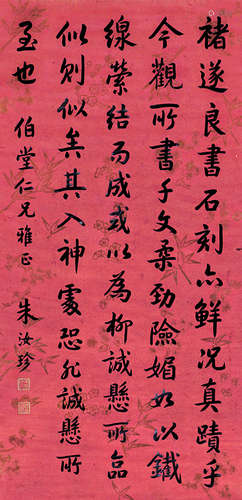 褚遂良書石刻亦鮮況真蹟乎
今觀所書千文柔勁險媚如以鐵
線縈結而成或以為柳誠懸所臨
似則似矣其入神處恐非誠懸所
至也 伯堂仁兄雅正 朱汝珍